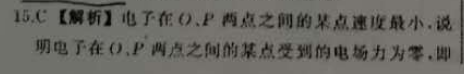 15.C【解析】电子在O、P 两点之间的某点速度最小,说
明电子在O、P 两点之间的某点受到的电场力为零,即